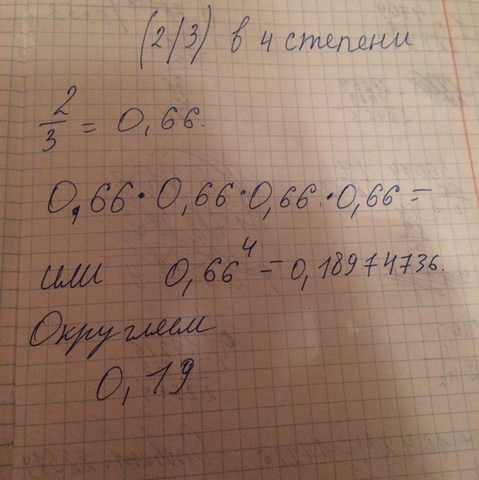 (2/3) в 4 степени
2/3 = 0,66.
0,66·0,66·0,66·0,66=
или 0,66⁴=0,18974736.
Округляем
0,19